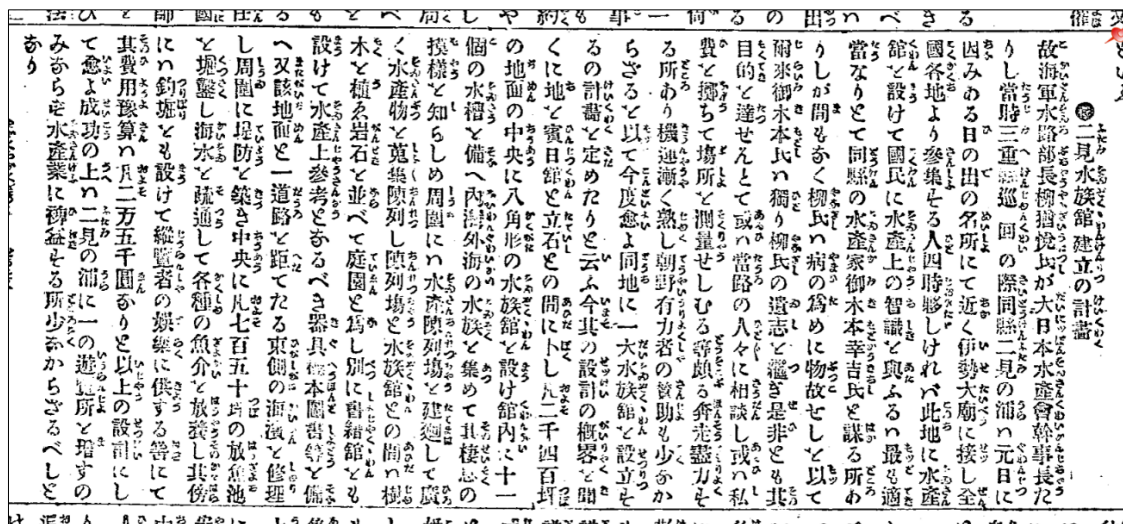 二見水族館建立の計畫
故海軍水路部長柳猶悦氏が大日本水產會幹事長た
りし當時三重縣巡回の際同縣二見の浦ハ元日に
因みある日の出の名所にて近く伊勢大廟に接し全
國各地より參集する人四時夥しけれバ此地に水產
館を設けて國民に水產上の智識を與ふるハ最も適
當なりとて同縣の水產家御木本幸吉氏と謀る所あ
りしが間もなく柳氏ハ病の爲めに物故せしを以て
爾來御木本氏ハ獨り柳氏の遺志を繼ぎ是非とも其
目的を達せんとて或ハ當路の人々に相談し或ハ私
費を擲ちて塲所を測量せしむる等頗る奔走盡力す
る所あり機運漸く熟し朝野有力者の賛助も少か
らざるを以て今度愈よ同地に一大水族館を設立す
るの計畫を定めたりと云ふ今其の設計の概畧を聞
くに地を賓日館と立石との間に卜し凡二千四百坪
の地面の中央に八角形の水族館を設け館內に十一
個の水槽を備へ內海外海の水族を集めて其棲息の
摸樣を知らしめ周圍にハ水產陳列塲を建廻して廣
く水產物を蒐集陳列し陳列塲と水族館との間ハ樹
木を植ゑ岩石を並べて庭園と爲し別に書籍館をも
設けて水產上參考となるべき器具標本圖書等を備
へ又該地面と一道路を距てたる東側の海濱を修理
し周圍に堤防を築き中央に凡七百五十坪の放魚池
を堀鑿し海水を疏通して各種の魚介を放養し其傍
にハ釣堀をも設けて縱覽者の娯樂に供する筈にて
其費用豫算ハ凡二万五千圓なりと以上の設計にし
て愈よ成功の上ハ二見の浦に一の遊覽所を增すの
みならず水產業に裨益する所少なからざるべしと
なり